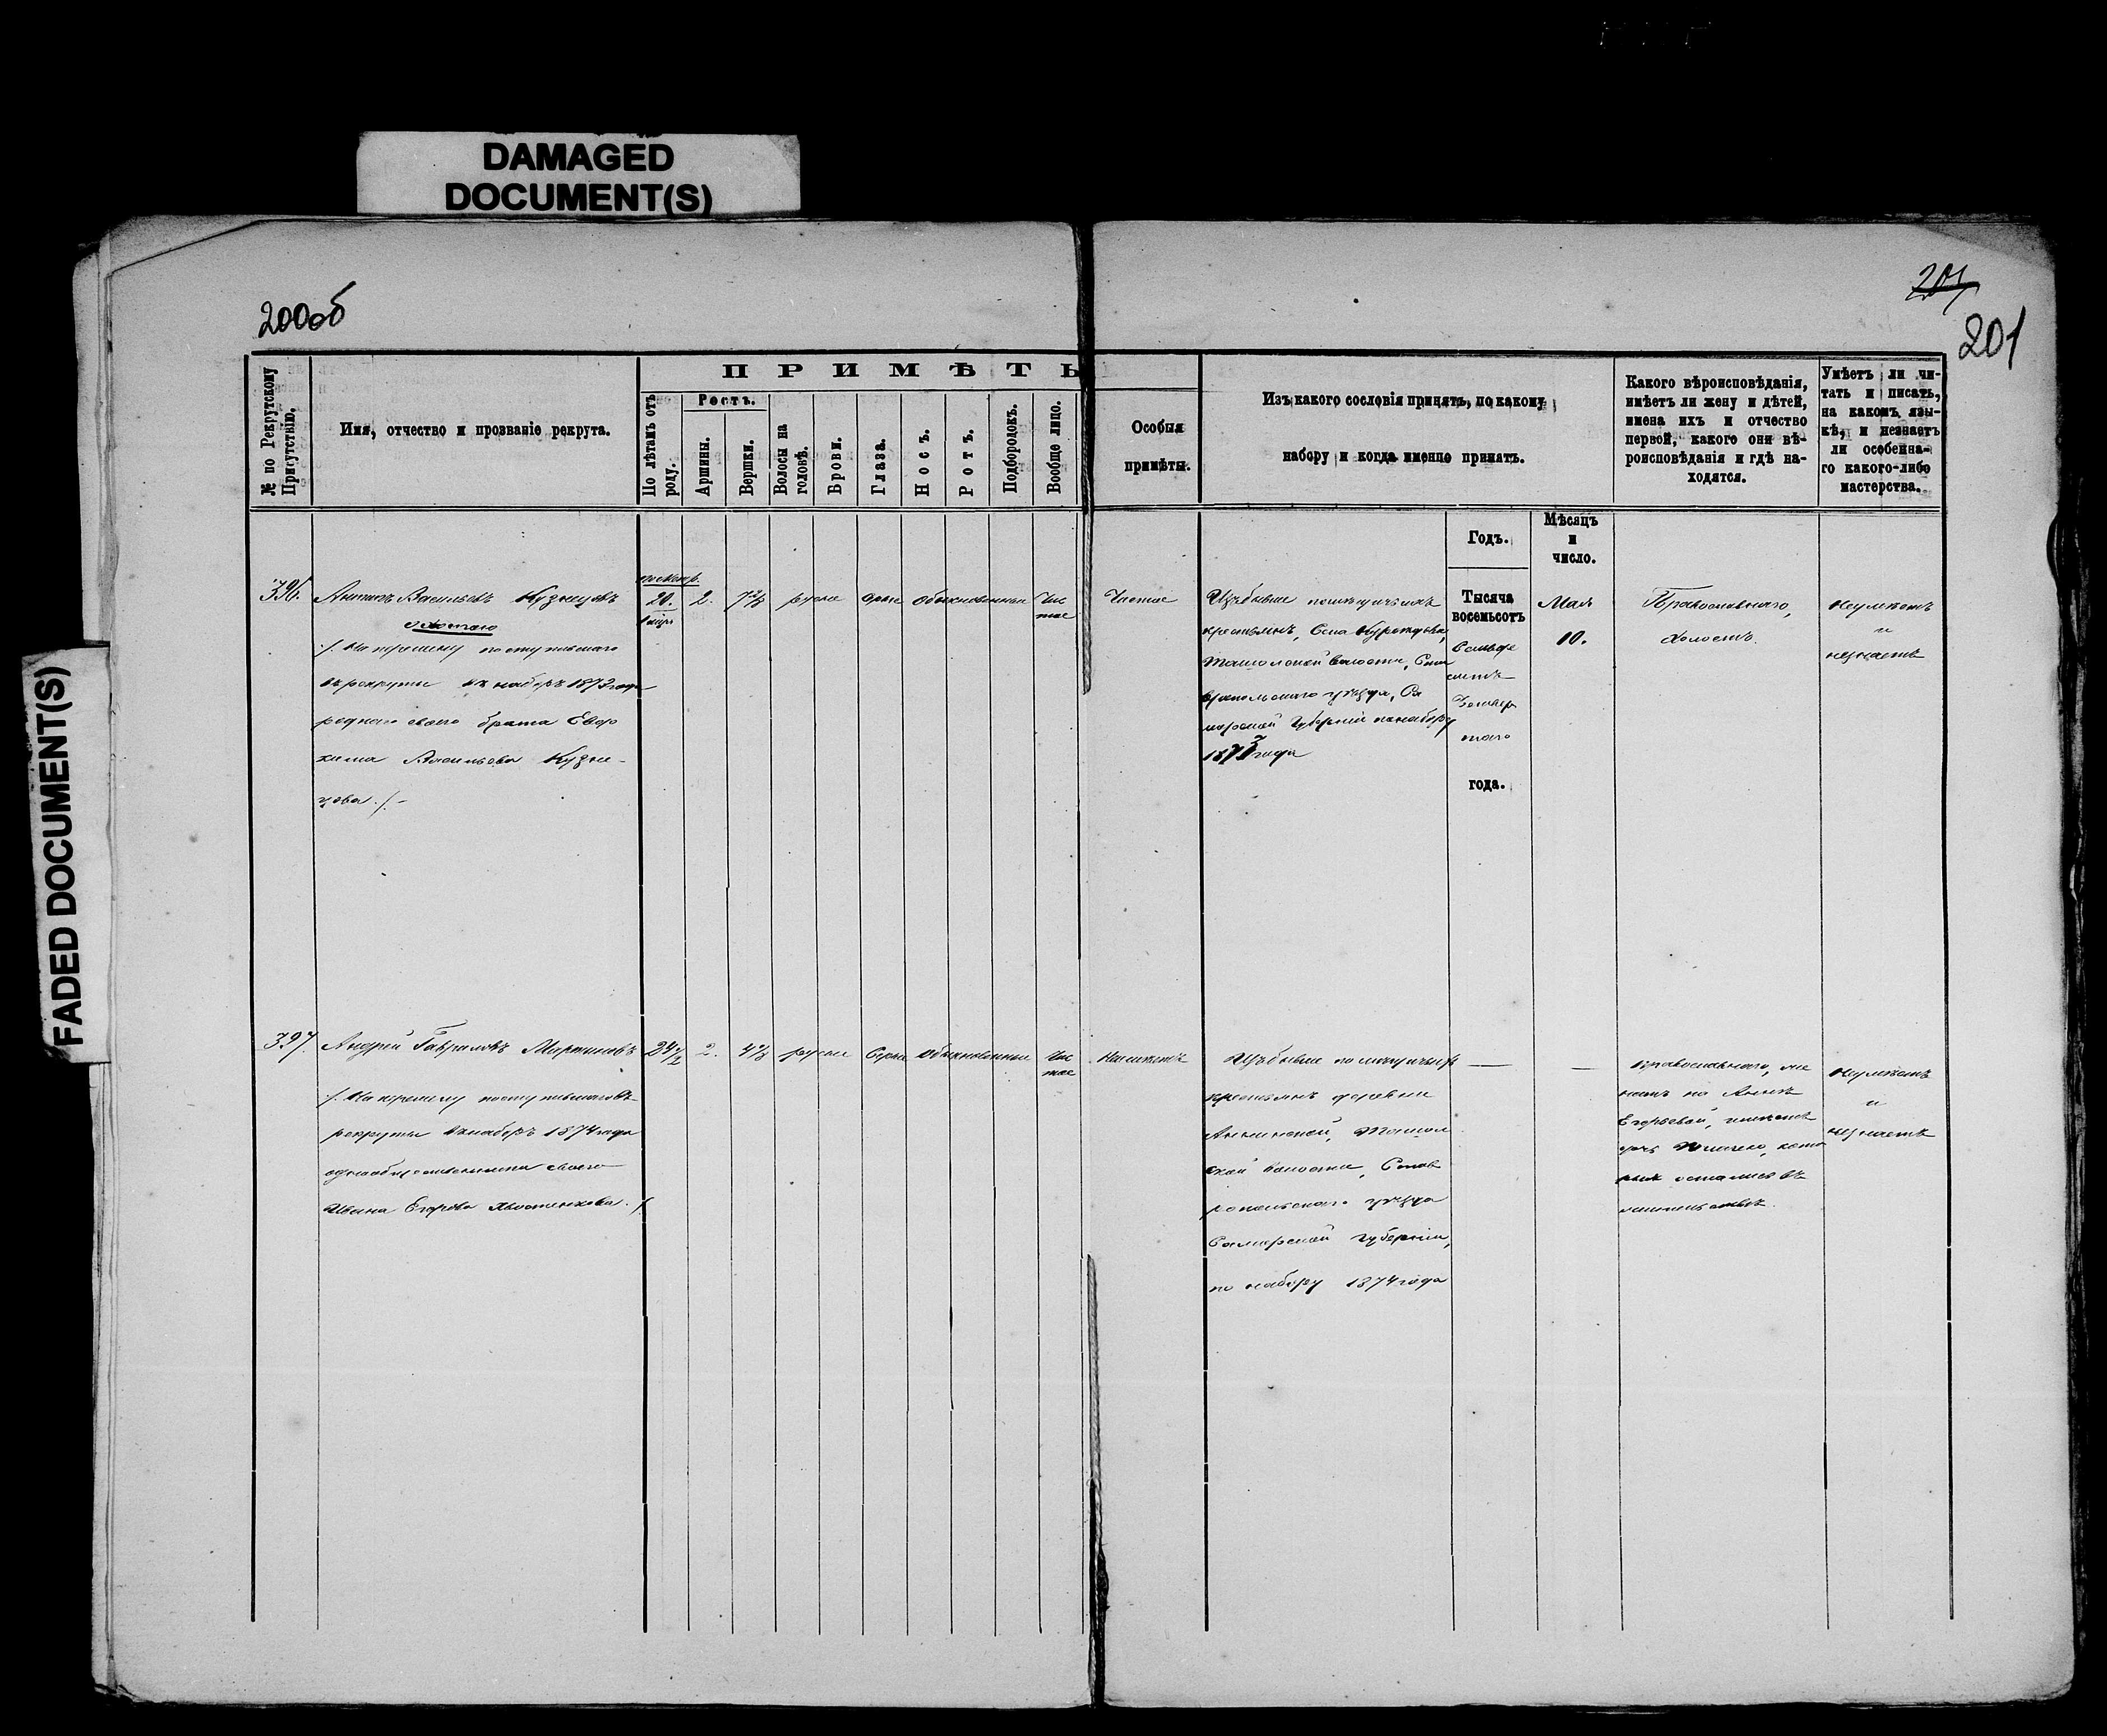 DAMAGED
DOCUMENT(S)
FADED DOCUMENT(S)
200об
201
201
ПРИМѢТЫ
№ по Рекрутскому
Присутствію.
Имя, отчество и прозваніе рекрута.
По лѣтамъ отъ
роду.
Ростъ.
Аршины.
Вершки.
Волосы на
головѣ.
Брови.
Глаза.
Носъ.
Ротъ.
Подбородокъ.
Вообще лицо.
Особыя
примѣты.
Изъ какого сословія принятъ, по какому
набору и когда именно принятъ.
Какого вѣроисповѣданія,
имѣетъ ли жену и дѣтей,
имена ихъ и отчество
первой, какого они вѣ-
роисповѣданія и гдѣ на-
ходятся.
Умѣетъ ли чи-
тать и писать,
на какомъ язы-
кѣ, и незнаетъ
ли особенна-
го какого-либо
мастерства.
Годъ.
Мѣсяцъ
и
число.
396.
Антипъ Васильевъ Кузнецовъ
/. На перемену поступившаго
въ рекруты въ наборъ 1873 года
роднаго своего брата Евдо
кима Васильева Кузне-
цова ./-
20.
2.
7 2/8
русые
Обыкновенные
Чис
тое
Чистое
Изъ бывше помѣщичьихъ
крестьянъ, Села
волости, Став
ропольскаго уѣзда, Са
марской Губерніи по набору
1873 года
Тысяча
восемьсотъ
Семьде
сятъ
Четвер
таго
года.
Мая
10.
Православнаго,
Холостъ.
Неумѣетъ
и
незнаетъ
397.
Андрей Гавриловъ Мартыновъ
/. На перемену поступившаго въ
рекруты въ наборъ 1874 года
однообщественника своего
Ивана Егорова ./.
24 1/2
2.
4 4/8
русые
Серые
Обыкновенные
Чис
тое
Неимѣетъ
Изъ бывше помещичьихъ
крестьянъ деревни
волости, Став
ропольскаго уѣзда
Самарской губерніи,
по набору 1874 года
—
—
Православнаго, же
натъ на Аннѣ
Егорьевой, имѣетъ
дочь кото
рыя остались въ
жительствѣ.
Неумѣетъ
и
незнаетъ